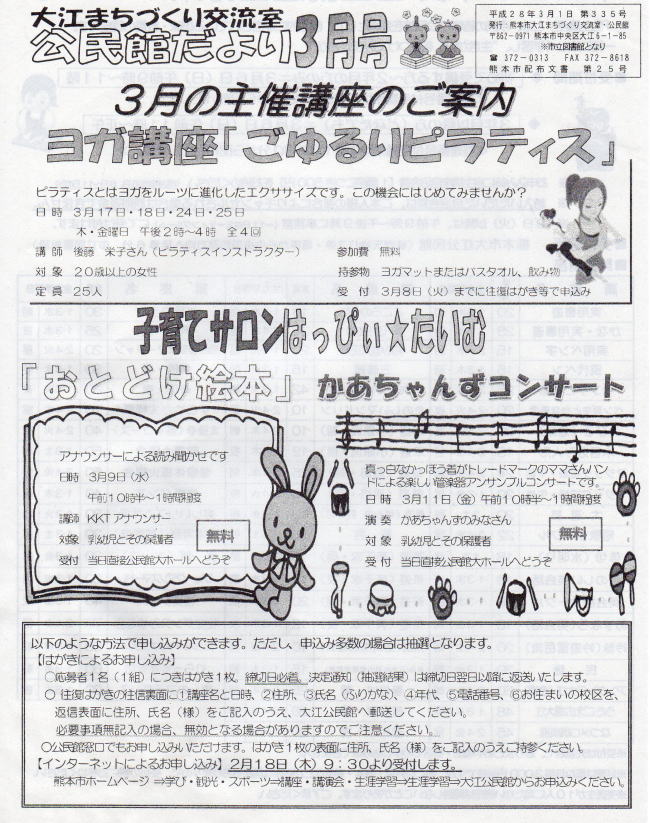 大江まちづくり交流室
公民館だより3月号
平成28年3月1日 第335号
発行:熊本市大江まちづくり交流室・公民館
〒862-0971 熊本市中央区大江6-1-85
※市立図書館となり
☎ 372-0313 FAX 372-8618
熊本市配布文書 第25号
3月の主催講座のご案内
ヨガ講座「ごゆるりピラティス」
ピラティスとはヨガをルーツに進化したエクササイズです。この機会にはじめてみませんか?
日時 3月17日・18日・24日・25日
木・金曜日 午後2時~4時 全4回
講師 後藤 栄子さん(ピラティスインストラクター)
対象 20歳以上の女性
定員 25人
参加費 無料
持参物 ヨガマットまたはバスタオル、飲み物
受付 3月8日(火)までに往復はがき等で申込み
子育てサロンはっぴぃ★たいむ
「おとどけ絵本」
アナウンサーによる読み聞かせです
日時 3月9日(水)
午前10時半~1時間程度
講師 KKTアナウンサー
対象 乳幼児とその保護者
受付 当日直接公民館大ホールへどうぞ
無料
かあちゃんずコンサート
真っ白なかっぽう着がトレードマークのママさんバンドによる楽しい管楽器アンサンブルコンサートです。
日時 3月11日(金)午前10時半~1時間程度
演奏 かあちゃんずのみなさん
対象 乳幼児とその保護者
受付 当日直接公民館大ホールへどうぞ
無料
以下のような方法で申し込みができます。ただし、申込み多数の場合は抽選となります。
【はがきによるお申し込み】
○応募者1名(1組)につきはがき1枚。締切日必着。決定通知(抽選結果)は締切日翌日以降に返送いたします。
○往復はがきの往信裏面に1講座名と日時、2住所、3氏名(ふりがな)、4年代、5電話番号、6お住まいの校区を、
返信表面に住所、氏名(様)をご記入のうえ、大江公民館へ郵送してください。
必要事項無記入の場合、無効となる場合がありますのでご注意ください。
○公民館窓口でもお申し込みいただけます。はがき1枚の表面に住所、氏名(様)をご記入のうえご持参ください。
【インターネットによるお申し込み】2月18日(木)9:30より受付します。
熊本市ホームページ⇒学び・観光・スポーツ⇒講座・講演会・生涯学習⇒生涯学習⇒大江公民館からお申込みください。